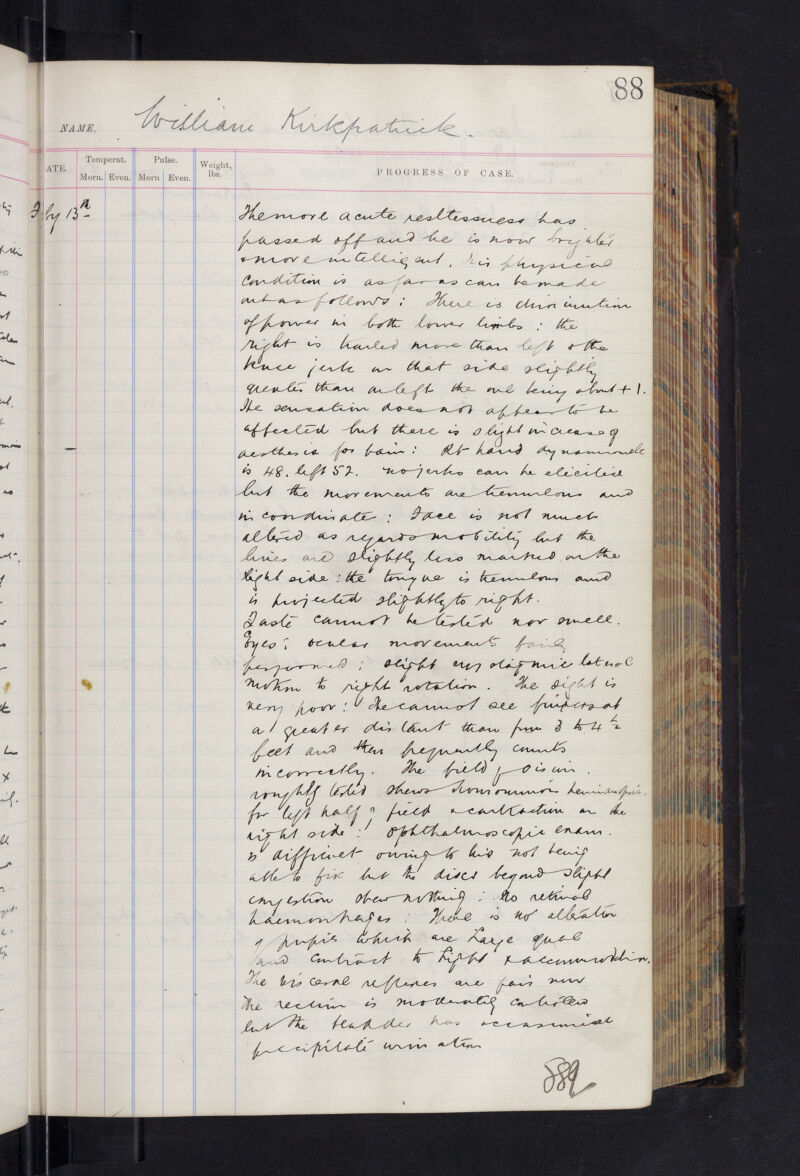 88
NAME, William Kirkpatrick.
ATE. Temperat. Morn. Even. Pulse. Morn Even. Weight, lbs. PROGRESS OF CASE.
Feby 13th
The more acute restlessness has
passed off and he is now brighter
& more intelligent. His physical
condition is as far as can be made
out as follows: There is diminution
of power in both lower limbs: the
right is trailed more than left & the
knee jerk on that side slightly
greater than on left the one being about + 1.
The sensation does not appear to be
affected but there is slight increase of
aesthesia for pain: Rt hand dynamometer
is 48. left 52. no jerks can be elicited
but the movements are tremulous and
incoordinate: Face is not much
altered as regards mobility but the
lines are slightly less marked on the
right side: the tongue is tremulous and
is projected slightly to right.
Taste cannot be tested nor smell.
Eyes: ocular movements fairly
performed; slight nystagmic lateral
motion to right rotation. The sight is
very poor: He cannot see fingers at
a greater distant than from 3 to 4½
feet and then frequently counts
incorrectly. The field of vision.
roughly tested shews homonymous hemianopsia
for left half of field & contraction on the
right side: Ophthalmoscopic exam.
is difficult owing to his not being
able to fix but the discs beyond slight
congestion shew nothing: No retinal
haemorrhages: There is no alteration
of pupils which are Large equal
and contract to Light & accommodation.
The visceral reflexes are fair now
the rectum is moderately controlled
but the bladder has occasional
precipitate urination
889